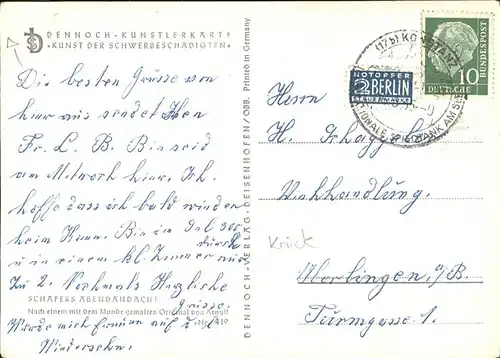 DENNOCH - KÜNSTLERKARTE
"KUNST DER SCHWERBESCHÄDIGTEN"
Die besten Grüsse von
hier aus sendet Ihnen
Fr. L. B. Bin seid
am Mitwoch hier. Ich
hoffe dass ich bald wieder
heim kann. Bin im
durch
u in einem kl. Zimmer
zu 2. Nochmals Herzliche
Grüsse.
SCHÄFERS ABENDANDACHT
Nach einem mit dem Munde gemalten Original von Arnulf
Nr. 419
Würde mich freuen auf
Wiedersehn.
DENNOCH - VERLAG - DEISENHOFEN/OBB. Printed in Germany
(17b) KONSTANZ
INTERNATIONALE SPIELBANK AM SEE
NOTOPFER
2 BERLIN
STEUERMARKE
10
DEUTSCHE
BUNDESPOST
Herrn
H.
Buchhandlung.
Knick
Überlingen, a/B.
Turmgasse 1.